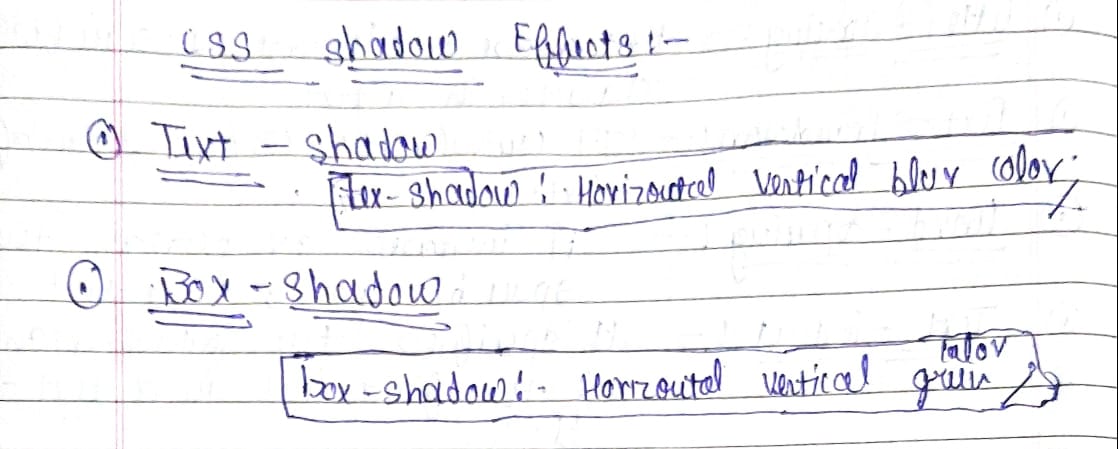 CSS shadow Effects :-
Text - shadow
tex-shadow : Horizontal vertical blur color;
Box - shadow
color
box-shadow :- Horizontal vertical green